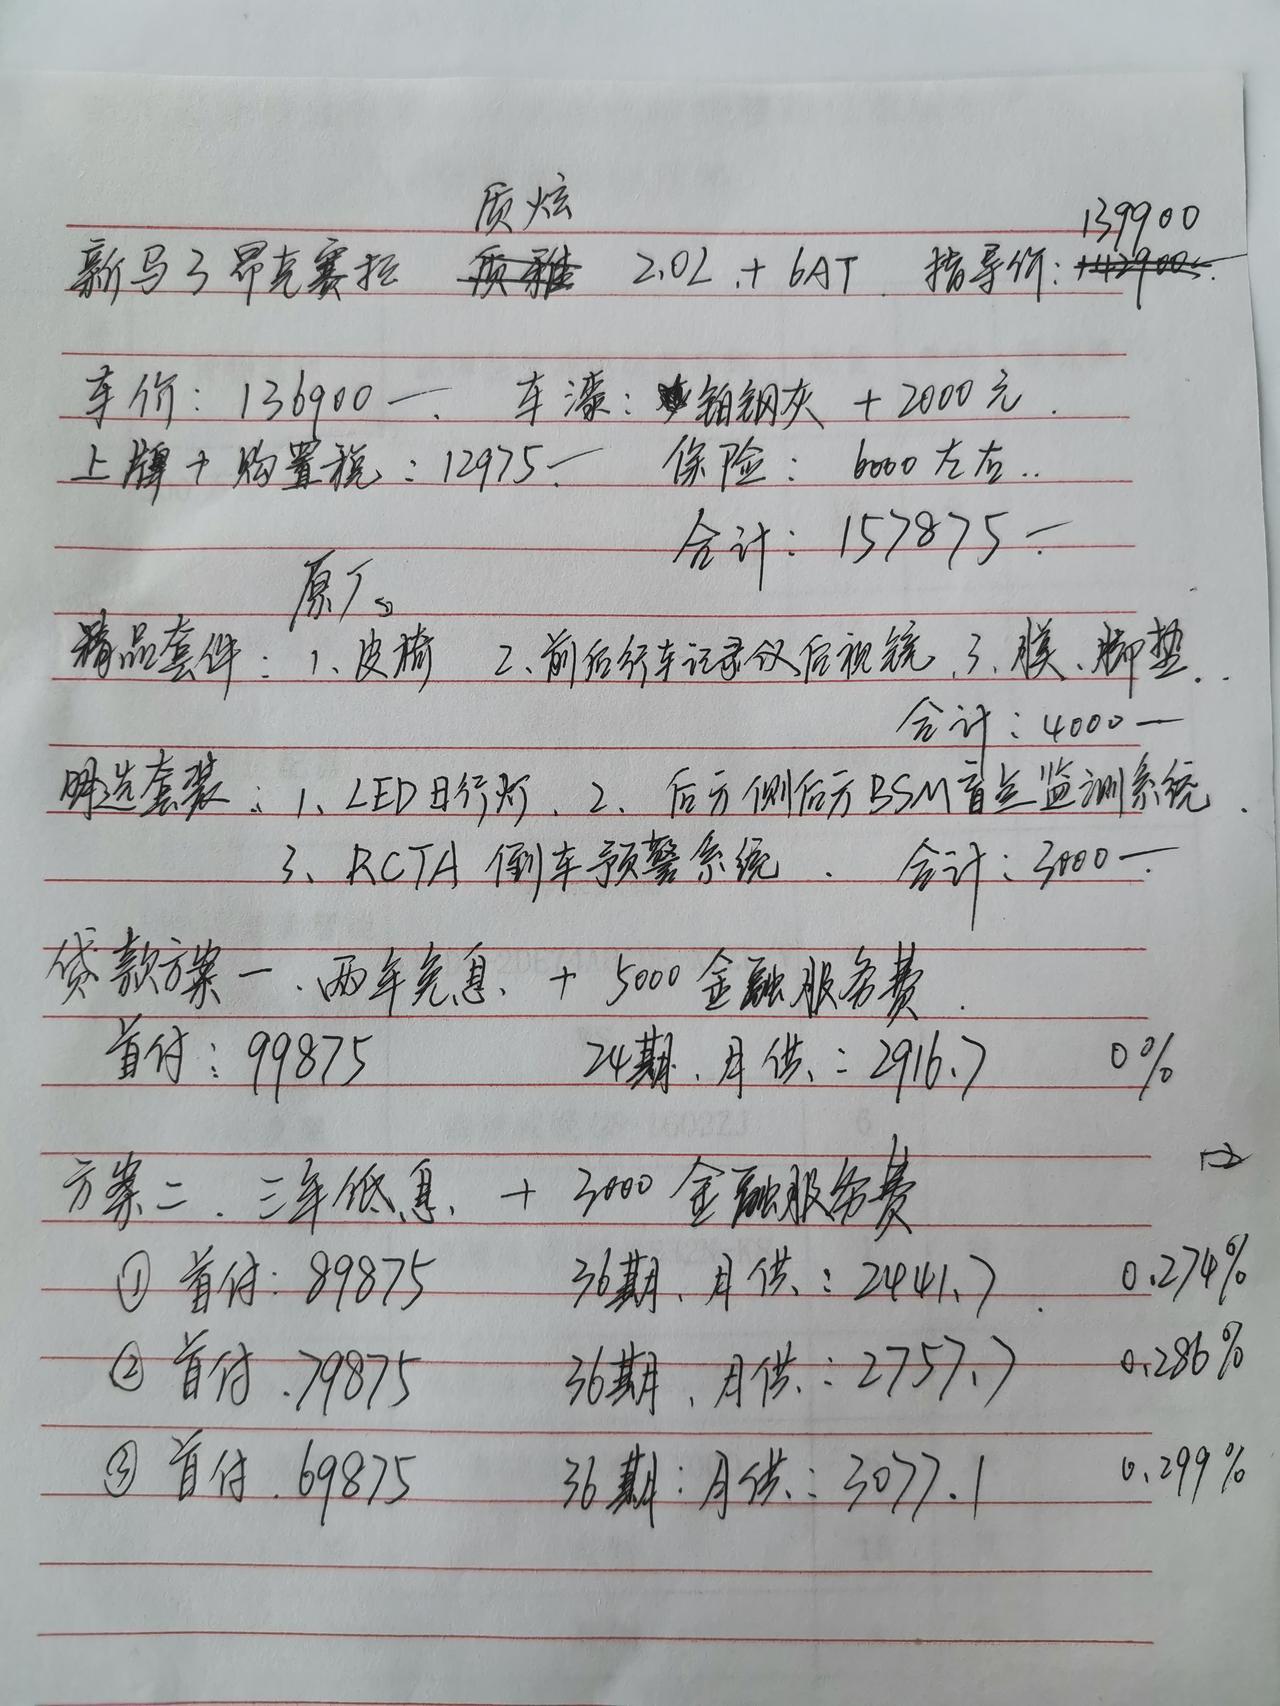 质炫
139900
新马3昂克赛拉 质雅 2.0L + 6AT 指导价: 142900
车价: 136900一. 车漆: 铂钢灰 +2000元.
上牌+购置税: 12975一. 保险: 6000左右..
合计: 157875一
原厂。
精品套件: 1、皮椅 2、前后行车记录仪后视镜、3、膜、脚垫..
合计: 4000一
明选套装: 1、LED日行灯、2、后方侧后方BSM盲点监测系统.
3、RCTA倒车预警系统. 合计: 3000一
贷款方案一、两年免息、+5000金融服务费.
首付: 99875 24期、月供、: 2916.7 0%
方案二. 三年低息、+3000金融服务费
① 首付: 89875 36期、月供、: 2441.7. 0.274%
② 首付.79875 36期、月供、: 2757.7 0.286%
③ 首付.69875 36期:月供、: 3077.1 0.299%